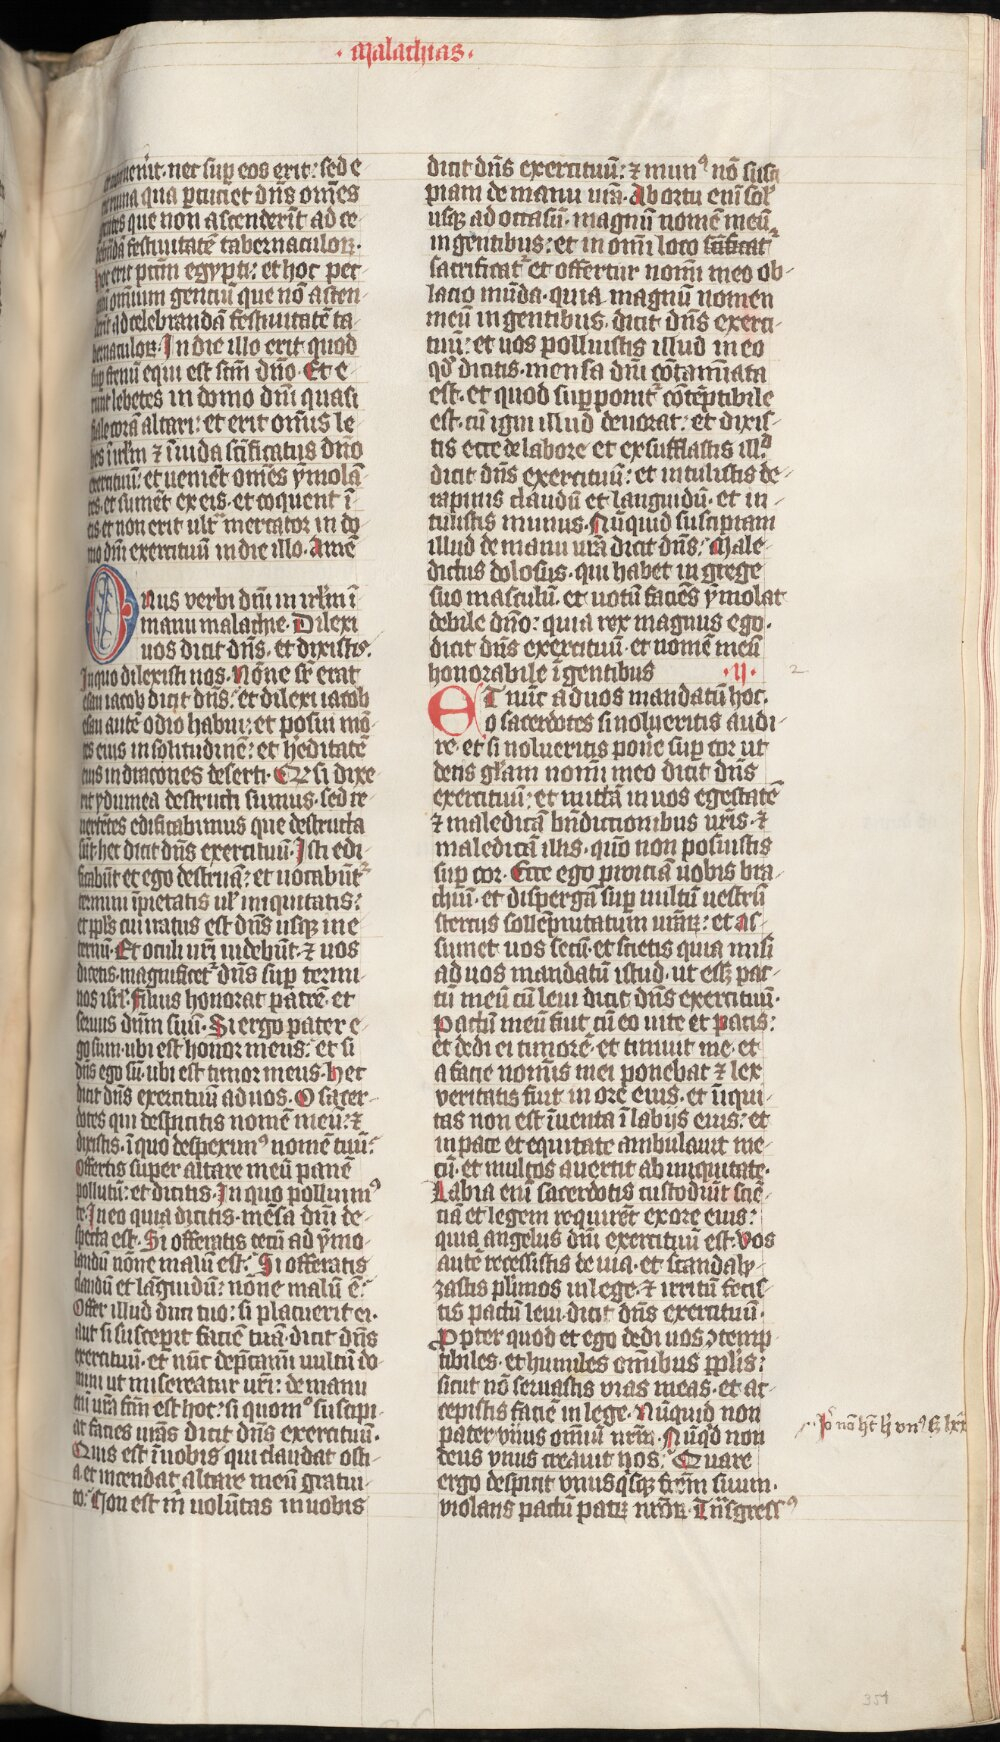 · Malachias ·
venerit. nec sup eos erit: sed e
ruina qua pcuciet dn̄s om̄es
gentes que non ascenderīt ad ce
lebrādā festiuitatē tabernaculoꝝ.
hoc erit pctm̄ egypti: et hoc pec
omnium genciū que nō ascen
derīt ad celebrandā festiuitatē ta
bernaculoꝝ. In die illo erit quod
sup frenū equi est scm̄ dn̄o. Et e
runt lebetes in domo dn̄i quasi
fiale corā altari: et erit om̄is le
bes ī irl̄m ⁊ ī iuda scīficatus dn̄o
exercituū: et ueniēt om̄es ymolā
tes. et sumēt ex eis. et coquent ī
eis et non erit ultᷓ mercator in do
mo dn̄i exercituū in die illo. Amē
Onus verbi dn̄i in irl̄m ī
manu malachie. Dilexi
uos dicit dn̄s. et dixistis.
In quo dilexisti nos. Nōne fr̄ erat
esau iacob dicit dn̄s: et dilexi iacob
esau autē odio habui: et posui mō
tes eius in solitudinē: et hēditatē
eius in dracones deserti. Qꝛ si dixe
rit ydumea destructi sumus. sed re
uertētes edificabimus que destructa
sūt. hec dicit dn̄s exercituū. Isti edi
ficabūt et ego destruā: et uocabūtᷣ
termini īpietatis ul̓ iniquitatis:
et ppl̄s cui iratus est dn̄s usqꝫ in e
ternū. Et oculi ur̄i uidebūt. ⁊ uos
dicetis. magnificetᷣ dn̄s sup termi
nos isrl̓. Filius honorat patrē. et
seruus dn̄m suū. Si ergo pater e
go sum. ubi est honor meus: et si
dn̄s ego sū. ubi est timor meus. hec
dicit dn̄s exercituū ad uos. O sacer
dotes qui despicitis nomē meū: ⁊
dixistis. ī quo despeximꝰ nomē tuū:
Offertis super altare meū panē
pollutū: et dicitis. In quo polluimꝰ
te. In eo quia dicitis. mēsa dn̄i de
specta est. Si offeratis cecū ad ymo
landū nōne malū est: Si offeratis
claudū et lāguidū: nōne malū ē:
Offer illud duci tuo: si placuerit ei.
aut si susceperit faciē tuā. dicit dn̄s
exercituū. et nūc dep̄camī uultū do
mini ut misereatur ur̄i: de manu
eni ur̄a fcm̄ est hoc: si quomꝰ suscipi
at facies ur̄as dicit dn̄s exercituū.
Quis est ī uobis qui claudat osti
a et incendat altare meū gratui
to: Non est m̄ uolūtas in uobis
dicit dn̄s exercituū: ⁊ munꝰ nō susci
piam de manu ur̄a. Ab ortu eni sol̓
usqꝫ ad occasū. magnū nomē meū
in gentibus: et in om̄i loco
sacrificatᷣ et offertur nomī meo ob
lacio mūda. quia magnū nomen
meū in gentibus. dicit dn̄s exerci
tuū: et uos polluistis illud in eo
qd̓ dicitis. mensa dn̄i cōtamīata
est. et quod supponitᷣ cōtēptibile
est. cū igni illud deuorat: et dixis
tis ecce de labore et exsufflastis illᷓ
dicit dn̄s exercituū: et intulistis de
rapinis claudū et languidū. et in
tulistis munus. Nūquid suscipiam
illud de manu ur̄a dicit dn̄s: Male
dictus dolosus. qui habet in grege
suo masculū. et uotū faciēs ymolat
debile dn̄o: quia rex magnus ego.
dicit dn̄s exercituū. et nomē meū
honorabile ī gentibus ·II· 2
ET nūc ad uos mandatū hoc.
o sacerdotes si nolueritis audi
re. et si nolueritis pone sup cor ut
detis gl̓am nomī meo dicit dn̄s
exercituū: et mittā in uos egestatē
⁊ maledicā bn̄dictionibus ur̄is. ⁊
maledicā illis. qm̄ non posuistis
sup cor. Ecce ego proiciā uobis bra
chiū. et dispergā sup uultū uestrū
stercus sollēpnitatum ur̄aꝝ: et as
sumet uos secū. et scietis quia misi
ad uos mandatū istud. ut eēt pac
tū meū cū leui dicit dn̄s exercituū.
Pactū meū fuit cū eo uite et pacis:
et dedi ei timorē. et timuit me. et
a facie nomīs mei pauebat ⁊ lex
veritatis fuit in ore eius. et īiqui
tas non est īuenta ī labijs eius: et
in pace et equitate ambulauit me
cū. et multos auertit ab iniquitate.
Labia eni sacerdotis custodiūt sciē
ciā et legem requirēt ex ore eius:
quia angelus dn̄i exercituū est. Vos
autē recessistis de uia. et scandaly
zastis pl̄imos in lege. ⁊ irritū fecis
tis pactū leui. dicit dn̄s exercituū.
Ppter quod et ego dedi uos ꝯtemp
tibiles. et humiles omībus ppl̄is:
sicut nō seruastis vias meas. et ac
cepistis faciē in lege. Nūquid non
pater vnus omniū nr̄m. Nūqd̓ non
deus vnus creauit nos: Quare
ergo despicit vnusqͥsqꝫ frēm suum.
violans pactū patꝝ nr̄oꝝ. Tn̄sgressꝰ
354